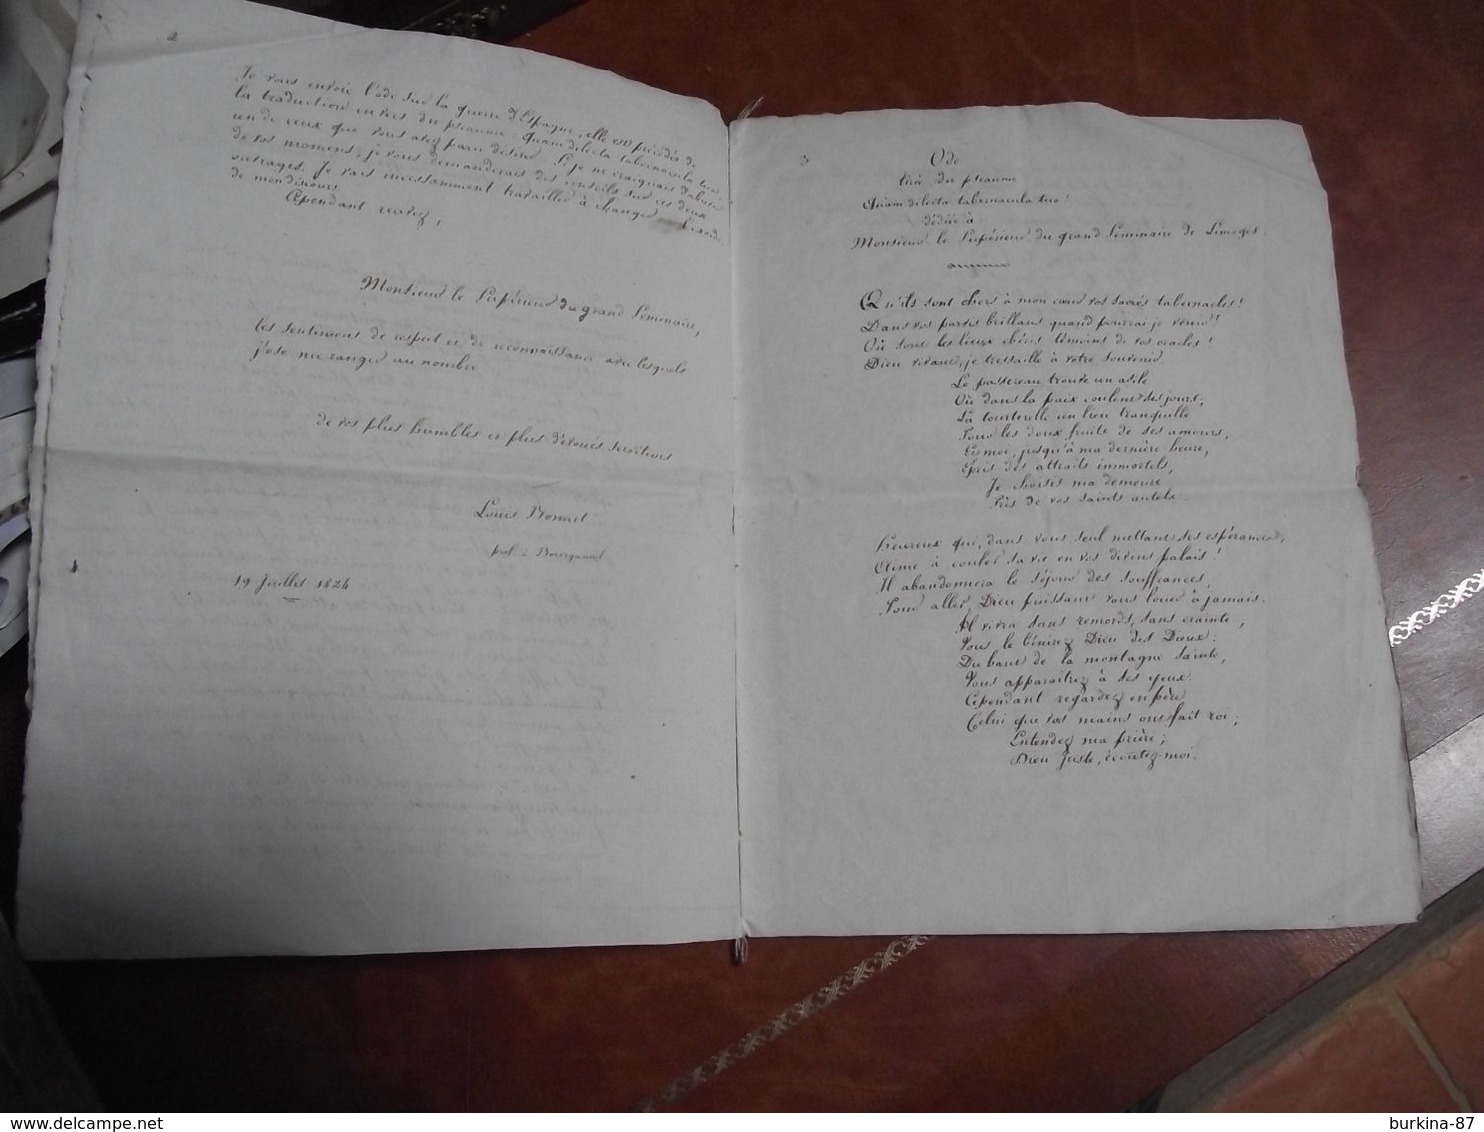 2
Je vous envoie l'ode sur la guerre d'Espagne, elle est précédée de
la traduction en vers du pseaume : Quam dilecta tabernacula tua :
un de ceux que vous avez paru désirer. Si je ne craignais d'abuser
de vos momens, je vous demanderais des conseils sur ces deux
ouvrages. Je vais incessamment travailler à changer l'exorde
de mon discours.
Cependant recevez,
Monsieur le Supérieur du grand Séminaire,
les sentimens de respect et de reconnaissance avec lesquels
j'ose me ranger au nombre
de vos plus humbles et plus dévoués serviteurs
Louis Bonnet
prof. à
19 Juillet 1824
3
Ode
tirée du pseaume
Quam dilecta tabernacula tua !
dédiée à
Monsieur le Supérieur du grand Séminaire de Limoges.
Qu'ils sont chers à mon cœur vos sacrés tabernacles !
Dans vos parvis brillans quand pourrai-je venir !
Où sont les lieux chéris témoins de vos oracles !
Dieu vivant, je tressaille à votre souvenir
Le passereau trouve un asile
Où dans la paix coulent ses jours,
La tourterelle un lieu tranquille
Pour les doux fruits de ses amours,
Et moi, jusqu'à ma dernière heure,
Épris des attraits immortels,
Je choisis ma demeure
Près de vos saints autels.
Heureux qui, dans vous seul mettant ses espérances,
Aime à couler sa vie en vos divins palais !
Il abandonnera le séjour des souffrances,
Pour aller, Dieu puissant vous louer à jamais.
Il vivra sans remords, sans crainte,
Vous le bénirez Dieu des Dieux.
Du haut de la montagne sainte,
Vous apparaîtrez à ses yeux.
Cependant regardez en père
Celui que vos mains ont fait roi ;
Entendez ma prière ;
Dieu Juste, écoutez-moi.
www.delcampe.net
burkina-87